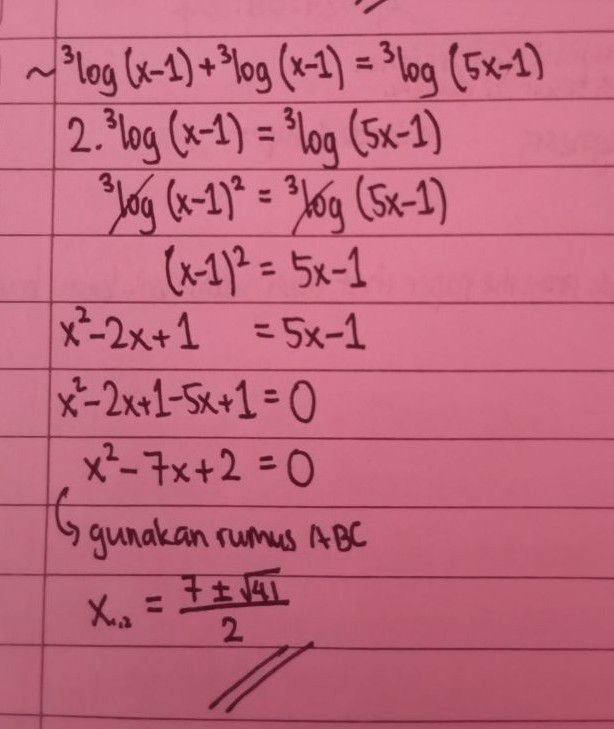 ~ ³log (x-1) + ³log (x-1) = ³log (5x-1)
2. ³log (x-1) = ³log (5x-1)
³log (x-1)² = ³log (5x-1)
(x-1)² = 5x-1
x²-2x+1 = 5x-1
x²-2x+1-5x+1 = 0
x²-7x+2 = 0
↳ gunakan rumus ABC
x₁,₂ = (7 ± √41) / 2